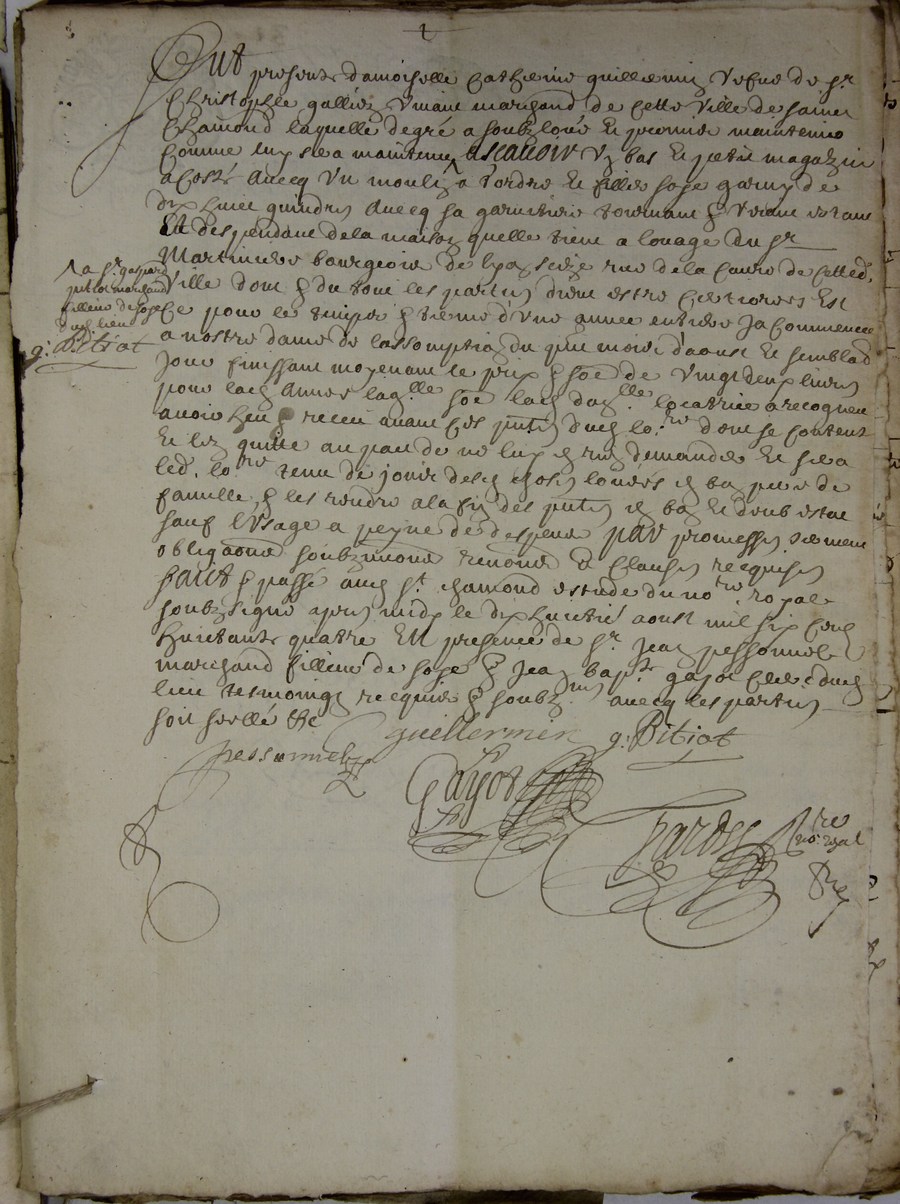 1
Fut presente damoiselle Catherine guillermin vefve de sr
Christophle galliez vivant marchand de cette ville de sainct
Chamond laquelle de gré a soubzloüé et promis maintenir
comme luy sera maintenu ascavoir un bas et petit magazin
a costé avecq un moulin a tordre et filler soye garny de
dix huict guindres avecq sa garniture tournant & virant estant
et despendant de la maison quelle tient a louage du sr
Martinière bourgeois de lyon size rue de la de cetted.
ville dont & du tout les parties dient estre certiorées Est
ce pour le temps & terme d'une année entiere ja commencée
a nostre dame de lassomption du que mois d'aoust et semblab
jour finissant moyenant le prix & soe de vingt deux livres
pour lad annee laq.lle soe lad dag.lle locatrice a recogneu
avoir heu & receu avant ces pntes dud lo.re dont se contente
et len quitte au pact de ne luy en rien demander et sera
led. lo.re tenu de jouir desd choses louées en bon pere de
famille & les rendre a la fin des pntes en bon et deub estat
sauf l'usage a peyne de despens par promesses serment
obligaons soubzmissions renonce & clauses recquises
faict & passé aud st. chamond estude du no.re royal
soubzsigné apres midy le dix huictie aoust mil six cens
huictante quatre En presence de sr. Jean pessonnel
marchand filleur de soye & Jean bap.te gayot clerc dud
lieu tesmoings recquis & soubz.nes avecq les parties
soit scellé &c
1 a sr. gaspard
pitiot marchand
filleur de soye
dud. lieu
g: Pitiot
guillermin g: Pitiot
pessonnel
Gayot
no.re royal